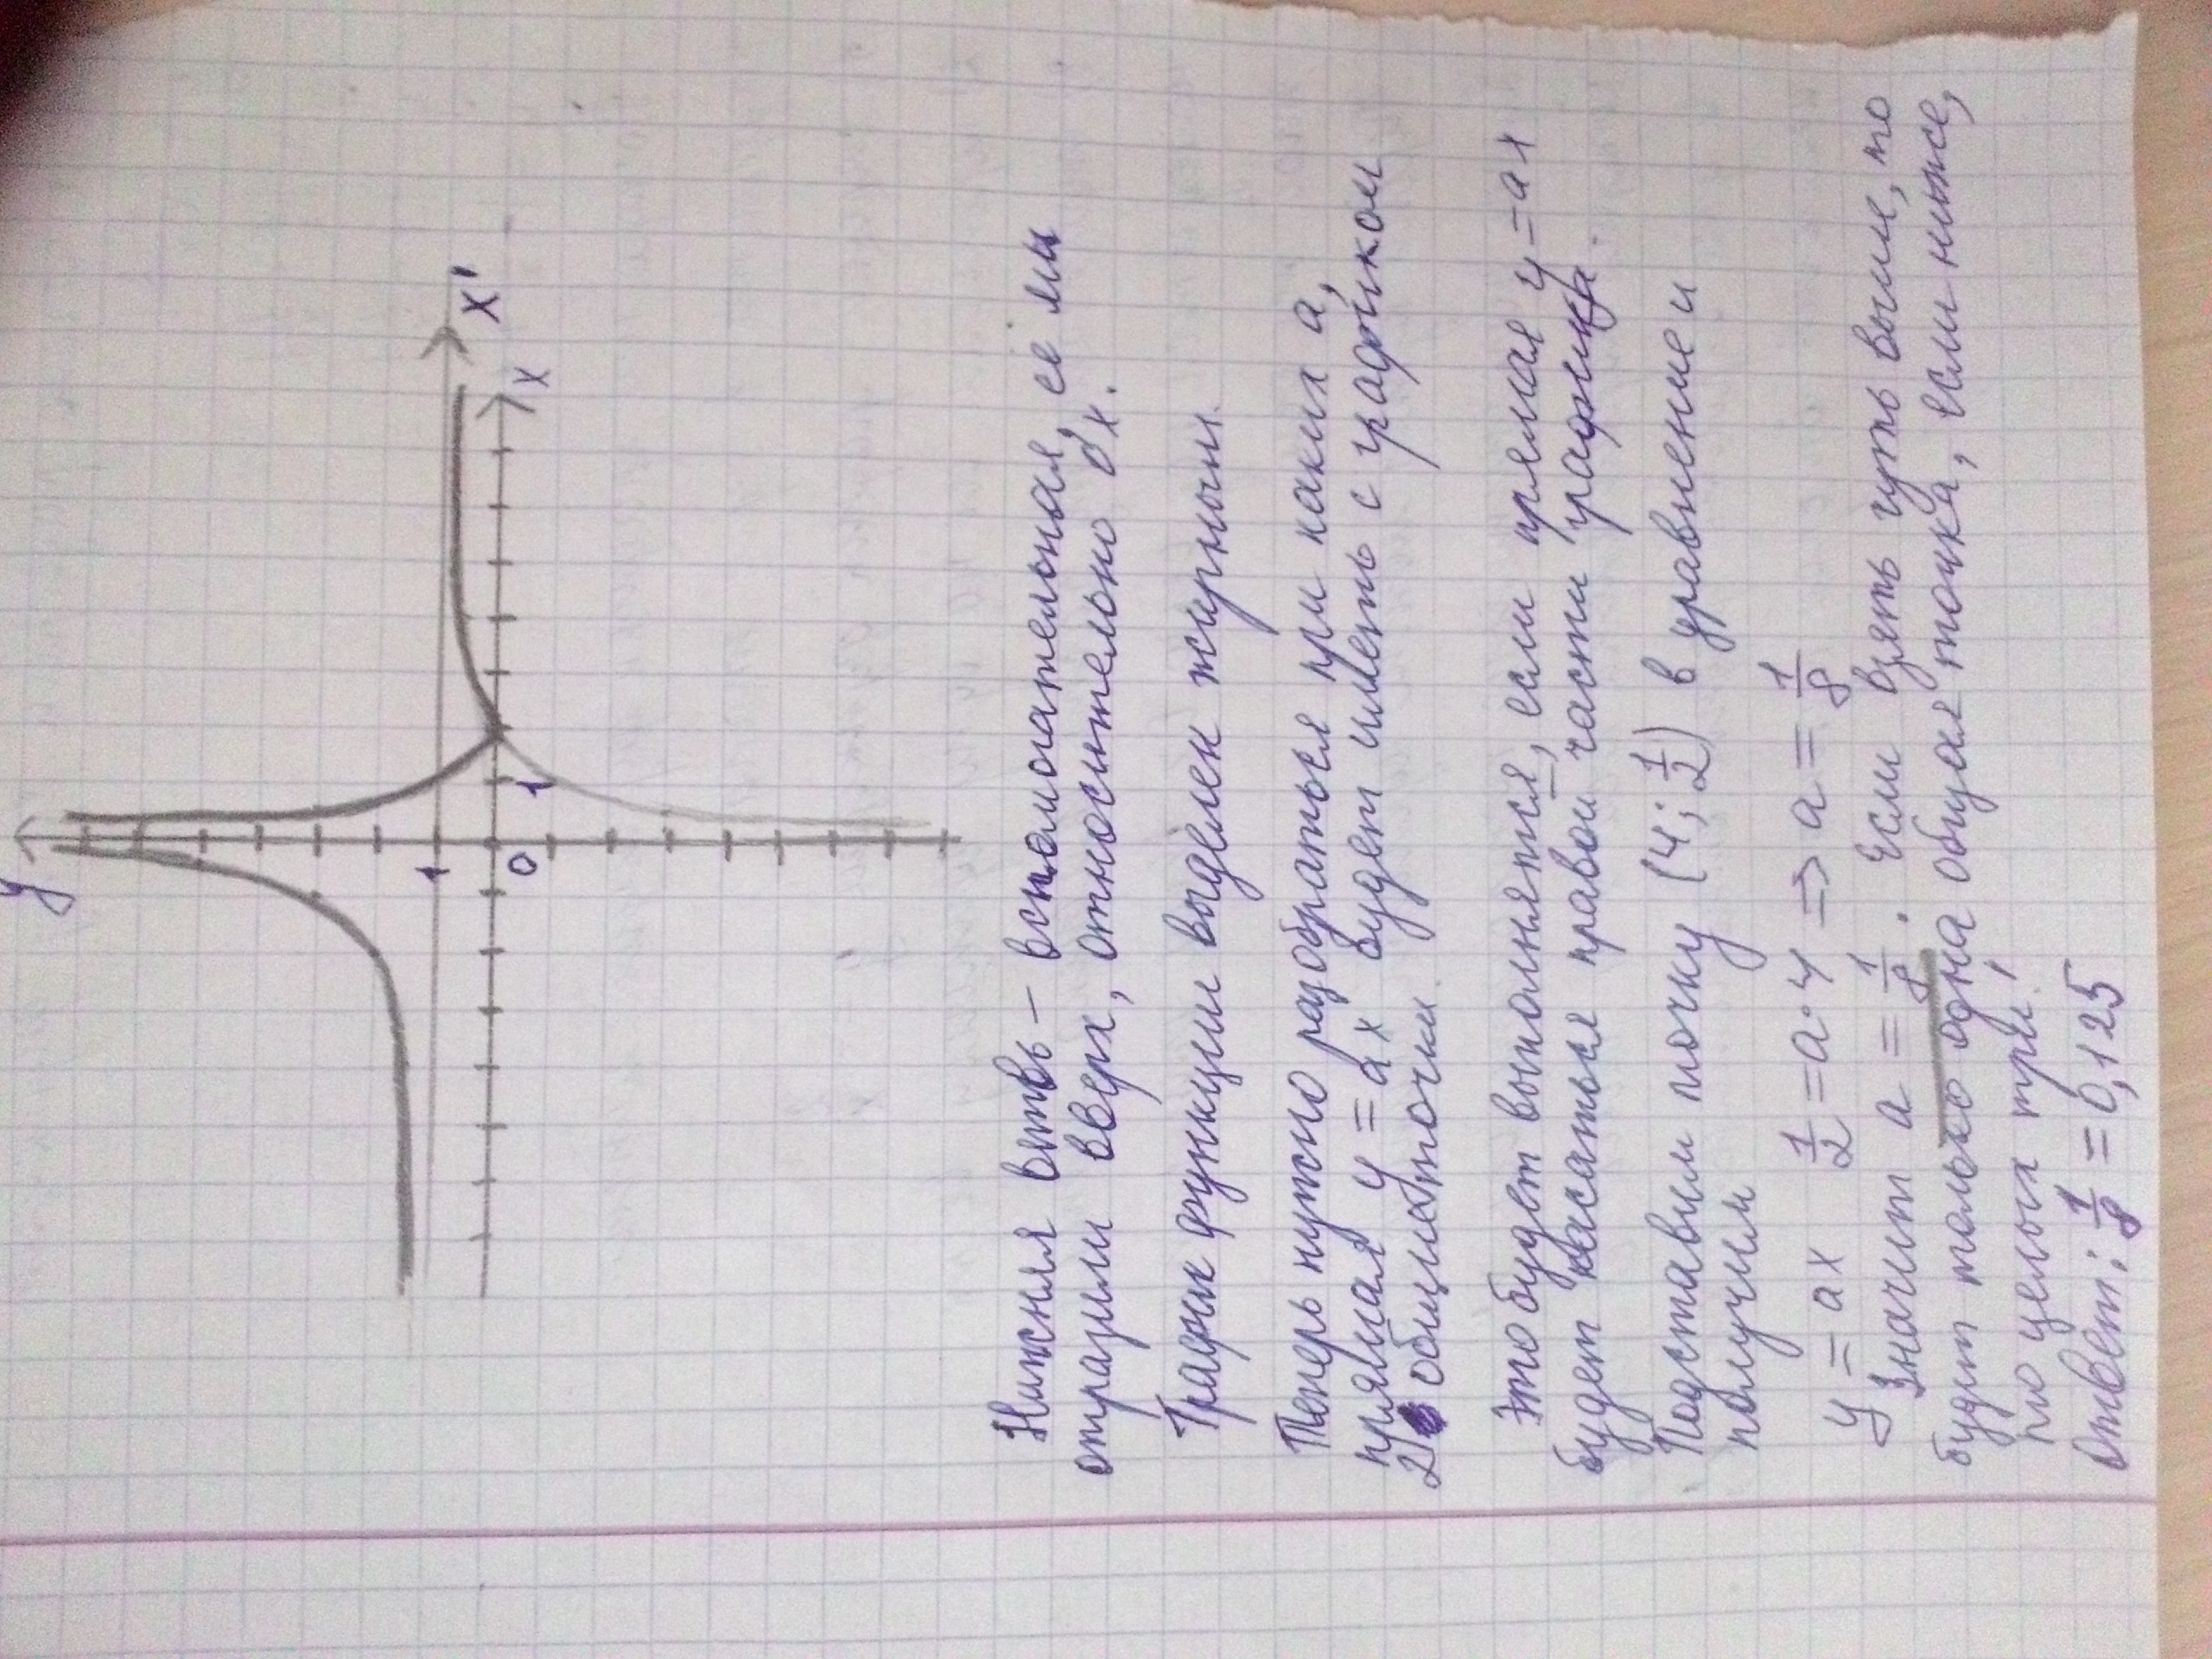 y
x'
x
1
0
1
Нижняя ветвь - вспомогательная, её мы
отразили вверх, относительно 0'х.
График функции выделен жирным.
Теперь нужно разобраться при каких а,
прямая y = ax будет иметь с графиком
2 общие точки.
Это будет выполняться, если прямая y = ax
будет касаться правой части графика.
Подставим точку (4; 1/2) в уравнение и
получим
y = ax 1/2 = a·4 => a = 1/8
Значит a = 1/8. Если взять чуть выше, то
будет только одна общая точка, если ниже,
то целых три!
Ответ: 1/8 = 0,125